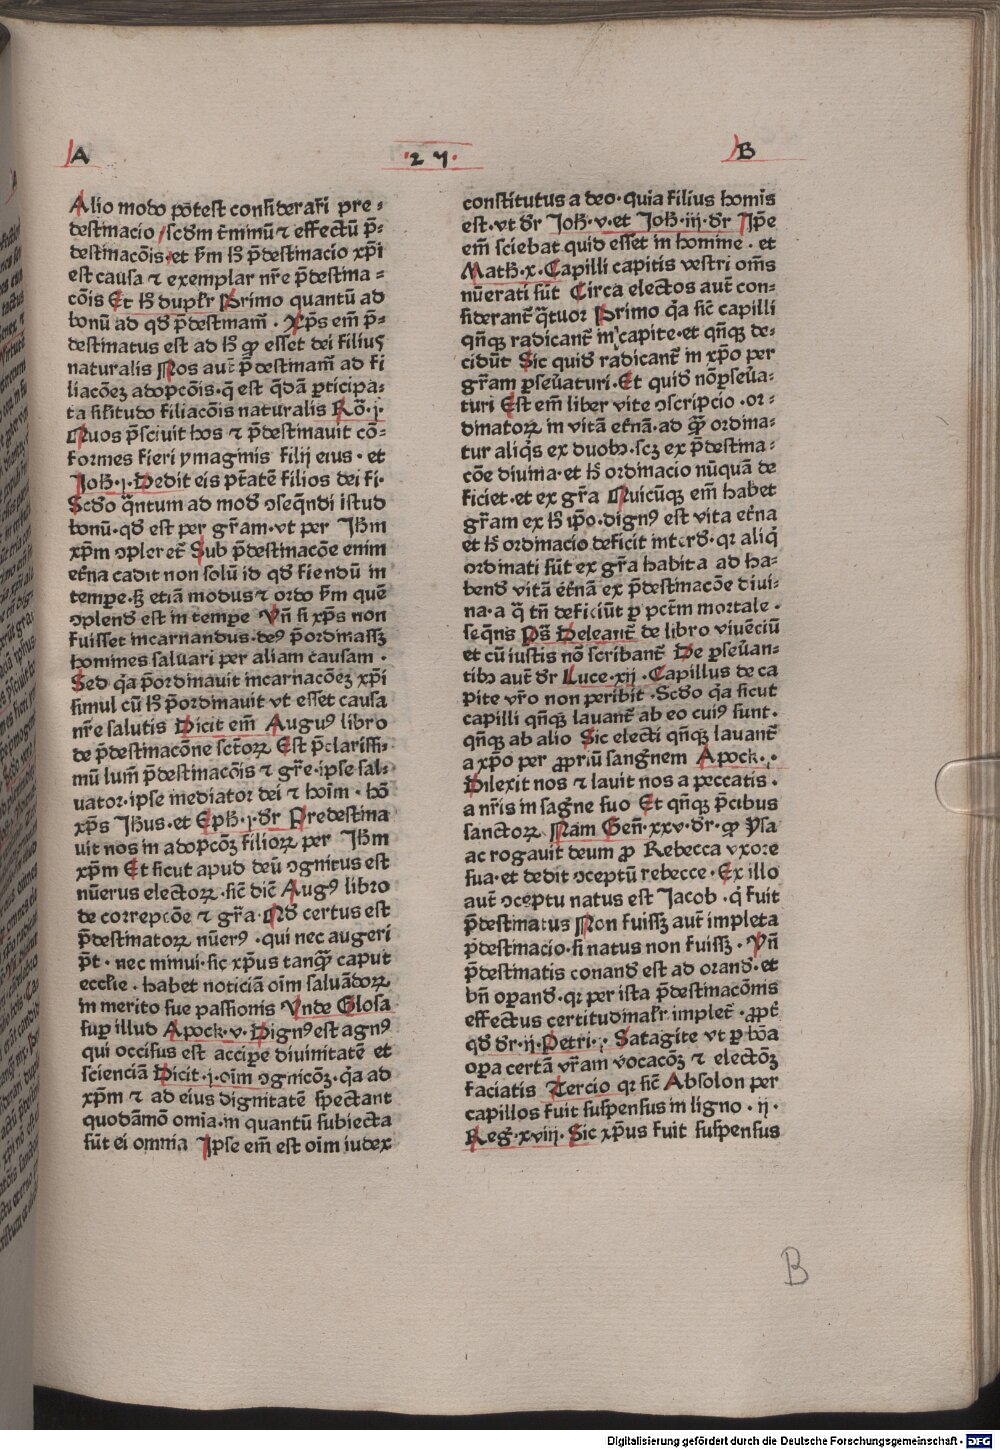 A
· 2 7 ·
B
Alio modo põtest considerari pre⸗
destinacio / scdm t̄minũ ⁊ effectũ p̄⸗
destinacõis et s̄m hꝭ p̄destinacio xp̄i
est causa ⁊ exemplar nr̄e p̄destina⸗
cõis Et hꝭ duplr̄ Primo quantũ ad
bonũ ad qd̄ p̄destinam̄ · Xp̄s em̄ p̄⸗
destinatus est ad hꝭ ꝙ esset dei filiꝰ
naturalis Nos aut̄ p̄destinam̄ ad fi
liacõeꝫ adopcõis · q̄ est q̄dã ꝑticipa⸗
ta silitudo filiacõis naturalis Rõ · j ·
Quos p̄sciuit hos ⁊ p̄destinauit cõ⸗
formes fieri ymaginis filij eius · et
Joh̄ · j · Dedit eis pt̄atē filios dei fi ·
Scd̄o q̄ntum ad mod̄ ꝯseq̄ndi istud
bonũ · qd̄ est per gr̄am · vt per Jh̄m
xp̄m ꝯpleret̄ Sub p̄destinacõe enim
et̄na cadit non solũ id qd̄ fiendũ in
tempore · sꝫ etiã modus ⁊ ordo s̄m quē
ꝯplend̄ est in tempore Vn̄ si xp̄s non
fuisset incarnandus · deꝰ p̄ordinassꝫ
homines saluari per aliam causam ·
Sed q̄a p̄ordinauit incarnacõeꝫ xp̄i
simul cũ hꝭ p̄ordinauit vt esset causa
nr̄e salutis Dicit em̄ Augꝰ libro
de p̄destinacõne sct̄oꝝ Est p̄clarissi⸗
mũ lum̄ p̄destinacõis ⁊ gr̄e · ipse sal⸗
uator · ipse mediator dei ⁊ hoīm · hõ
xp̄s Jh̄us · et Eph̄ · j · dr̄ Predestina
uit nos in adopcõꝫ filioꝝ per Jh̄m
xp̄m Et sicut apud deũ ꝯgnitus est
nũerus electoꝝ · sic̄ dic̄ Augꝰ libro
de correpcõe ⁊ gr̄a · Nũ certus est
p̄destinatoꝝ nũerꝰ · qui nec augeri
p̄t · nec minui · sic xp̄us tanq̄ꝫ caput
eccl̄ie · habet noticiã oīm saluãdoꝝ
in merito siue passionis Vnde Glosa
sup illud Apock · v · Dignꝰ est agnꝰ
qui occisus est accipe diuinitatē et
scienciã Dicit · j · oīm ꝯgnicõꝫ · q̄a ad
xp̄m ⁊ ad eius dignitatē spectant
quodãmõ omia · in quantũ subiecta
sũt ei omnia Ipse em̄ est oīm iudex
constitutus a deo · quia filius homīs
est · vt dr̄ Joh̄ · v · et Joh̄ · iij · dr̄ Ip̄e
em̄ sciebat quid esset in homine · et
Math̄ · x · Capilli capitis vestri om̄s
nũerati sũt Circa electos aut̄ con⸗
siderant̄ q̄tuor Primo q̄a sic̄ capilli
qn̄qꝫ radicant̄ in capite · et qn̄qꝫ de⸗
cidũt Sic quid̄ radicant̄ in xp̄o per
gr̄am ꝑseũaturi · Et quid̄ nõ ꝑseũa⸗
turi Est em̄ liber vite ꝯscripcio · or⸗
dinatoꝝ in vitã et̄nã · ad q̄ꝫ ordina⸗
tur aliq̄s ex duobꝰ · scꝫ ex p̄destina⸗
cõe diuina · et hꝭ ordinacio nũquã de
ficiet · et ex gr̄a Quicũqꝫ em̄ habet
gr̄am ex hꝭ ip̄o · dignꝰ est vita et̄na
et hꝭ ordinacio deficit interd̄ · qꝛ aliq̄
ordinati sũt ex gr̄a habita ad ha⸗
bend̄ vitã et̄nã ex p̄destinacõe diui⸗
na · a q̄ tn̄ deficiũt ꝑ pctm̄ mortale ·
seq̄ns Ps̄ Deleant̄ de libro viuēciũ
et cũ iustis nõ scribant̄ De ꝑseũan⸗
tibꝰ aut̄ dr̄ Luce · xij · Capillus de ca
pite vr̄o non peribit · Scd̄o q̄a sicut
capilli qn̄qꝫ lauant̄ ab eo cuiꝰ sunt ·
qn̄qꝫ ab alio Sic electi qn̄qꝫ lauant̄
a xp̄o per ꝓpriũ sang̃nem Apock · j ·
Dilexit nos ⁊ lauit nos a peccatis ·
a nr̄is in sag̃ne suo Et qn̄qꝫ p̄cibus
sanctoꝝ Nam Gen̄ · xxv · dr̄ · ꝙ Ysa
ac rogauit deum ꝓ Rebecca vxore
sua · et dedit ꝯceptũ rebecce · Ex illo
aut̄ ꝯceptu natus est Jacob · q̄ fuit
p̄destinatus Non fuissꝫ aut̄ impleta
p̄destinacio · si natus non fuissꝫ · Vn̄
p̄destinatis conand̄ est ad orand̄ · et
bn̄ oꝑand̄ · qꝛ per ista p̄destinacõnis
effectus certitudinalr̄ implet̄ · ꝓpt̄
qd̄ dr̄ · ij · Petri · j · Satagite vt ꝑ bõa
oꝑa certã vr̄am vocacõꝫ ⁊ electõꝫ
faciatis Tercio qꝛ sic̄ Absolon per
capillos fuit suspensus in ligno · ij ·
Reg̃ · xviij · Sic xp̄us fuit suspensus
B
Digitalisierung gefördert durch die Deutsche Forschungsgemeinschaft · DFG